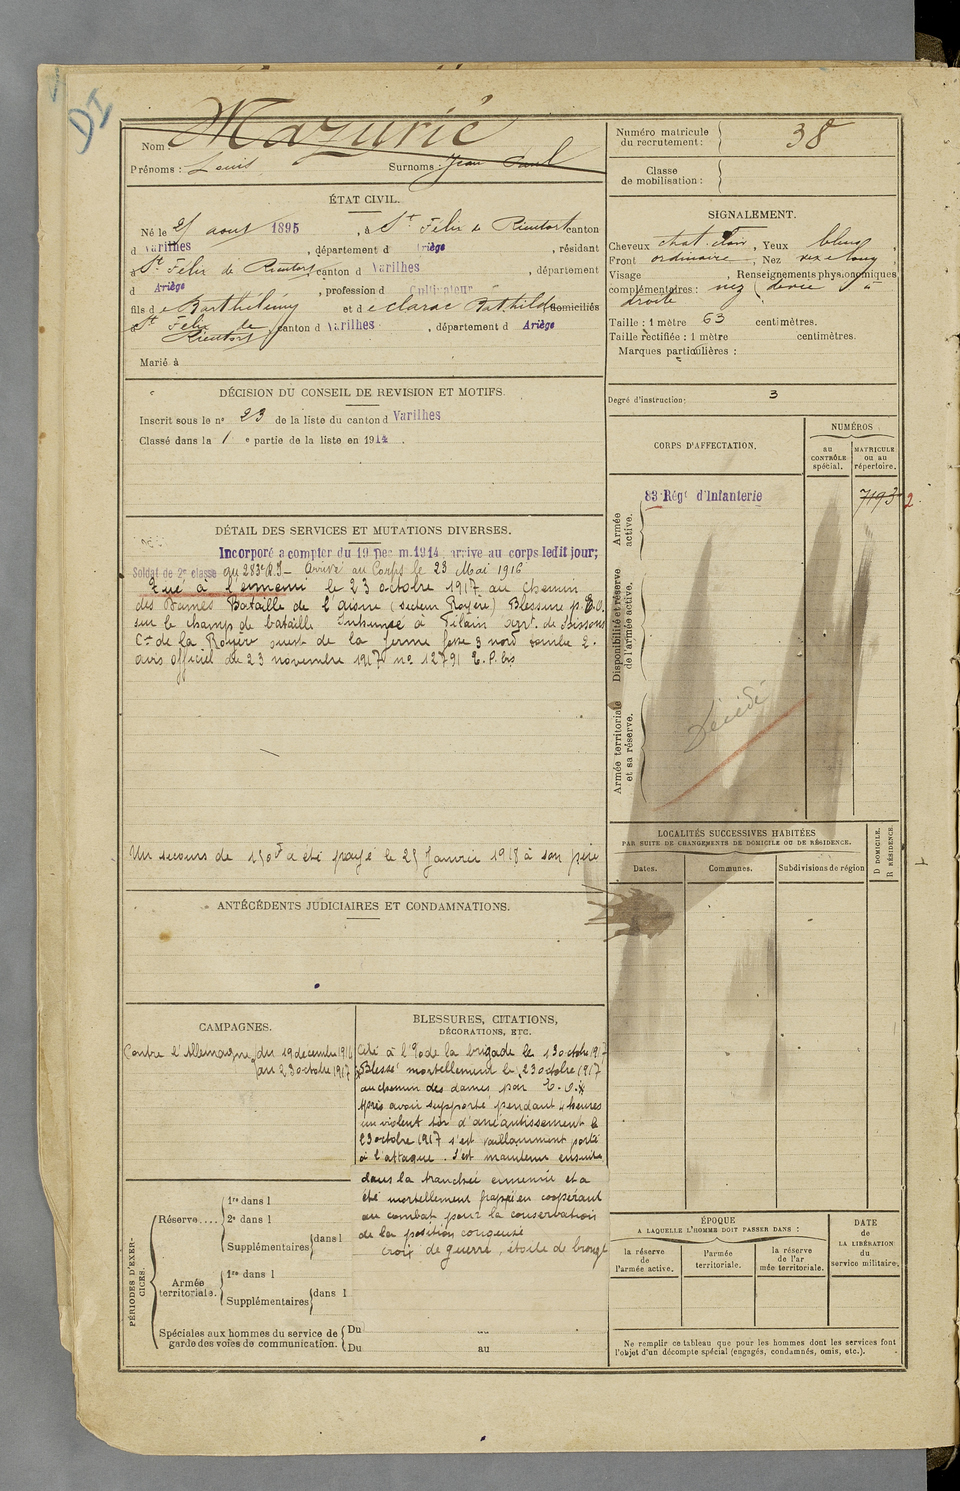 DI
Nom : Mazurié
Prénoms : Louis Surnoms : Jean Paul
ÉTAT CIVIL.
Né le 25 aout 1895, à St Felix de Rieutort canton
d Varilhes, département d Ariège, résidant
à St Felix de Rieutort canton d Varilhes, département
d Ariège, profession d Cultivateur
fils de Barthélémy et de Clarac Bathilde domiciliés
à St Felix de Rieutort, canton d Varilhes, département d Ariège
Marié à
DÉCISION DU CONSEIL DE REVISION ET MOTIFS.
Inscrit sous le no 23 de la liste du canton d Varilhes
Classé dans la 1 e partie de la liste en 1914.
DÉTAIL DES SERVICES ET MUTATIONS DIVERSES.
Incorporé à compter du 19 Décem. 1914, arrivé au corps ledit jour;
Soldat de 2e classe au 283e R.I – Arrivé au Corps le 23 Mai 1916
Tué à l'ennemi le 23 octobre 1917 au Chemin
des Dames Bataille de l'aisne (secteur Royère) Blessure p. E.O.
sur le champ de bataille Inhumé à Filain arrt. de Soissons
Cne de la Royère ouest de la ferme fosse 3 nord tombe 2.
avis officiel du 23 novembre 1917 no 12791 E. P. bis
Un secours de 150f a été payé le 25 Janvier 1918 à son père
ANTÉCÉDENTS JUDICIAIRES ET CONDAMNATIONS.
CAMPAGNES.
Contre l'Allemagne du 19 décembre 1914
au 23 octobre 1917
BLESSURES, CITATIONS,
DÉCORATIONS, ETC.
Cité à l'o de la brigade le 13 octobre 1917
Blessé mortellement le 23 octobre 1917
au chemin des dames par E.O.
Après avoir supporté pendant 4 heures
un violent tir d'anéantissement le
23 octobre 1917 s'est vaillamment porté
à l'attaque. S'est maintenu ensuite
dans la tranchée ennemie et a
été mortellement frappé en coopérant
au combat pour la conservation
de la position conquise
croix de guerre, étoile de bronze
PÉRIODES D'EXERCICES.
Réserve....
1re dans l
2e dans l
Supplémentaires dans l
Armée territoriale.
1re dans l
Supplémentaires dans l
Spéciales aux hommes du service de garde des voies de communication.
Du au
Du au
Numéro matricule du recrutement : 38
Classe de mobilisation :
SIGNALEMENT.
Cheveux chat. clair, Yeux bleus,
Front ordinaire, Nez
Visage , Renseignements physionomiques
complémentaires : nez
droite
Taille : 1 mètre 63 centimètres.
Taille rectifiée : 1 mètre centimètres.
Marques particulières :
Degré d'instruction : 3
CORPS D'AFFECTATION.
NUMÉROS
au CONTRÔLE spécial.
MATRICULE ou au répertoire.
Armée active.
83e Régt d'Infanterie 7193 2
Disponibilité et réserve de l'armée active.
Armée territoriale et sa réserve.
Décédé
LOCALITÉS SUCCESSIVES HABITÉES
PAR SUITE DE CHANGEMENTS DE DOMICILE OU DE RÉSIDENCE.
Dates. Communes. Subdivisions de région
D DOMICILE.
R RÉSIDENCE.
ÉPOQUE
A LAQUELLE L'HOMME DOIT PASSER DANS :
la réserve de l'armée active.
l'armée territoriale.
la réserve de l'armée territoriale.
DATE
DE LA LIBÉRATION
du service militaire.
Ne remplir ce tableau que pour les hommes dont les services font
l'objet d'un décompte spécial (engagés, condamnés, omis, etc.).